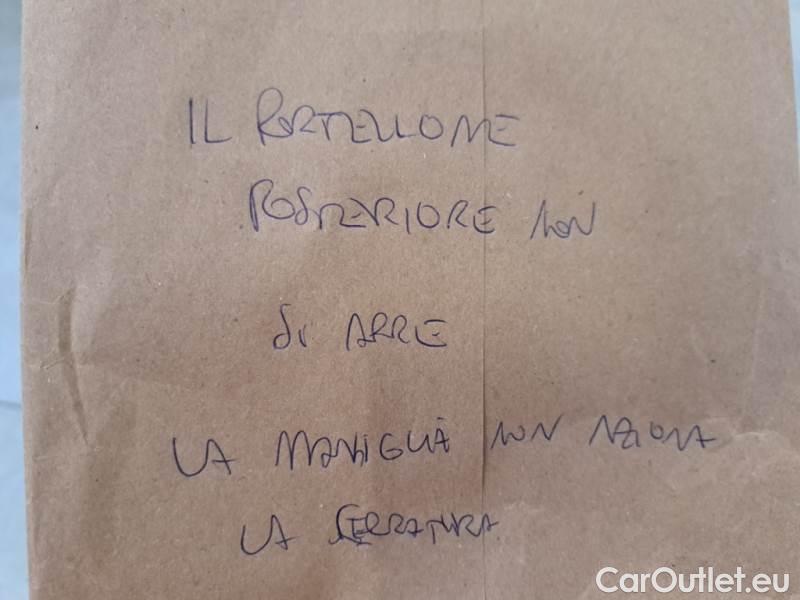 IL PORTELLONE
POSTERIORE NON
SI APRE
LA MANIGLIA NON AZIONA
LA SERRATURA
CarOutlet.eu